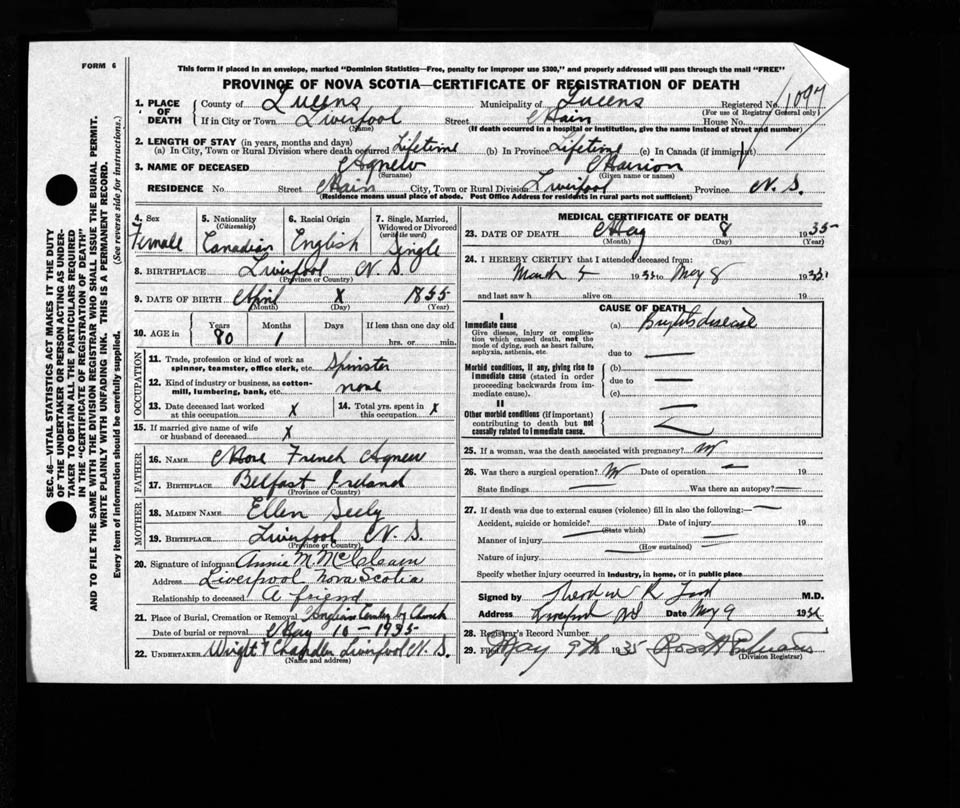 FORM 6
This form if placed in an envelope, marked "Dominion Statistics—Free, penalty for improper use $300," and properly addressed will pass through the mail "FREE"
PROVINCE OF NOVA SCOTIA—CERTIFICATE OF REGISTRATION OF DEATH
1. PLACE OF DEATH County of Queens Municipality of Queens Registered No. 1097
(For use of Registrar General only)
If in City or Town Liverpool Street Main House No.
(Name) (If death occurred in a hospital or institution, give the name instead of street and number)
2. LENGTH OF STAY (in years, months and days)
(a) In City, Town or Rural Division where death occurred Lifetime (b) In Province Lifetime (c) In Canada (if immigrant)
3. NAME OF DECEASED Agnew Marion
(Surname) (Given name or names)
RESIDENCE No. Street Main City, Town or Rural Division Liverpool Province N. S.
(Residence means usual place of abode. Post Office Address for residents in rural parts not sufficient)
SEC. 46—VITAL STATISTICS ACT MAKES IT THE DUTY
OF THE UNDERTAKER OR PERSON ACTING AS UNDER-
TAKER TO OBTAIN ALL THE PARTICULARS REQUIRED
IN THE "CERTIFICATE OF REGISTRATION OF DEATH"
AND TO FILE THE SAME WITH THE DIVISION REGISTRAR WHO SHALL ISSUE THE BURIAL PERMIT.
WRITE PLAINLY WITH UNFADING INK. THIS IS A PERMANENT RECORD.
Every item of information should be carefully supplied. (See reverse side for instructions.)
4. Sex Female
5. Nationality (Citizenship) Canadian
6. Racial Origin English
7. Single, Married, Widowed or Divorced (write the word) Single
8. BIRTHPLACE Liverpool N. S.
(Province or Country)
9. DATE OF BIRTH April X 1855
(Month) (Day) (Year)
10. AGE in Years 80 Months 1 Days If less than one day old hrs. or min.
OCCUPATION
11. Trade, profession or kind of work as spinner, teamster, office clerk, etc. Spinster
12. Kind of industry or business, as cotton-mill, lumbering, bank, etc. none
13. Date deceased last worked at this occupation X
14. Total yrs. spent in this occupation X
15. If married give name of wife or husband of deceased X
FATHER
16. NAME French Agnew
17. BIRTHPLACE Belfast Ireland
(Province or Country)
MOTHER
18. MAIDEN NAME Ellen Seely
19. BIRTHPLACE Liverpool N. S.
(Province or Country)
20. Signature of informant Annie M.
Address Liverpool Nova Scotia
Relationship to deceased A friend
21. Place of Burial, Cremation or Removal by Church
Date of burial or removal May 10 - 1935
22. UNDERTAKER Wright & Chandler Liverpool N. S.
(Name and address)
MEDICAL CERTIFICATE OF DEATH
23. DATE OF DEATH May 8 1935
(Month) (Day) (Year)
24. I HEREBY CERTIFY that I attended deceased from:
March 4 19 to May 8 19
and last saw h alive on 19
CAUSE OF DEATH
I
Immediate cause
Give disease, injury or complication which caused death, not the mode of dying, such as heart failure, asphyxia, asthenia, etc.
(a) Brights disease
due to —
Morbid conditions, if any, giving rise to immediate cause (stated in order proceeding backwards from immediate cause).
(b)
due to —
(c)
II
Other morbid conditions (if important) contributing to death but not causally related to immediate cause.
25. If a woman, was the death associated with pregnancy?
26. Was there a surgical operation? Date of operation — 19
State findings — Was there an autopsy? —
27. If death was due to external causes (violence) fill in also the following:—
Accident, suicide or homicide? Date of injury 19
(State which)
Manner of injury
(How sustained)
Nature of injury
Specify whether injury occurred in industry, in home, or in public place
Signed by M.D.
Address Liverpool NS Date May 9 19
28. Registrar's Record Number
29. Filed May 9th 1935
(Division Registrar)